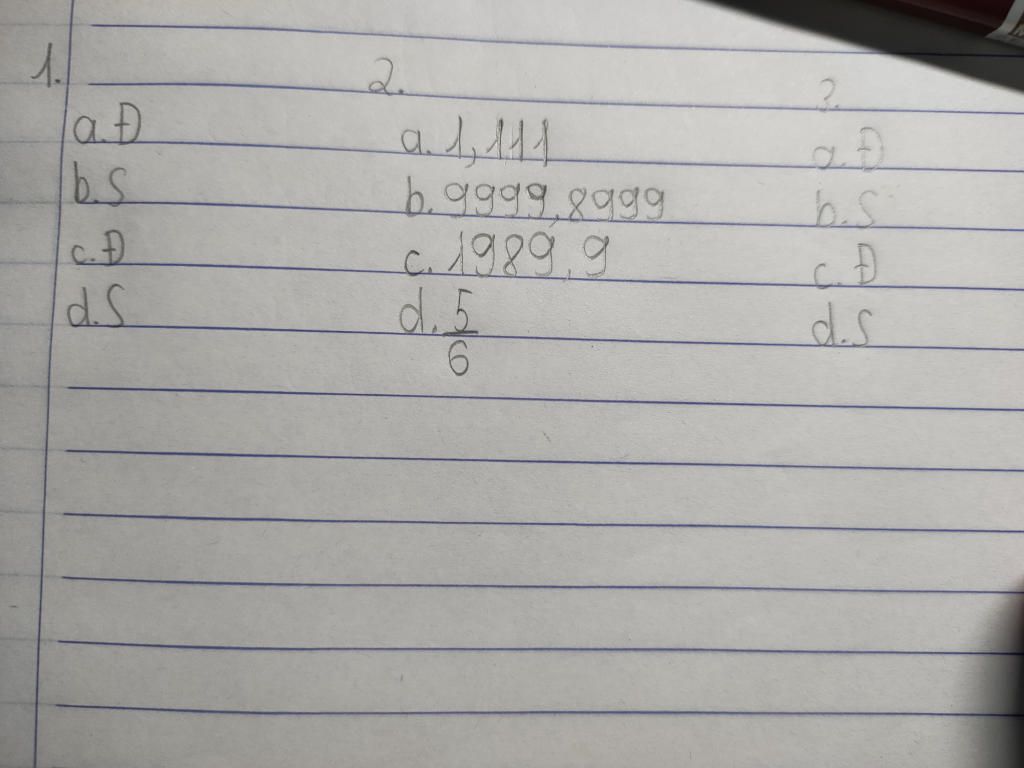 1.
a. Đ
b. S
c. Đ
d. S
2.
a. 1,111
b. 9999,8999
c. 1989,9
d. 5/6
3.
a. Đ
b. S
c. Đ
d. S